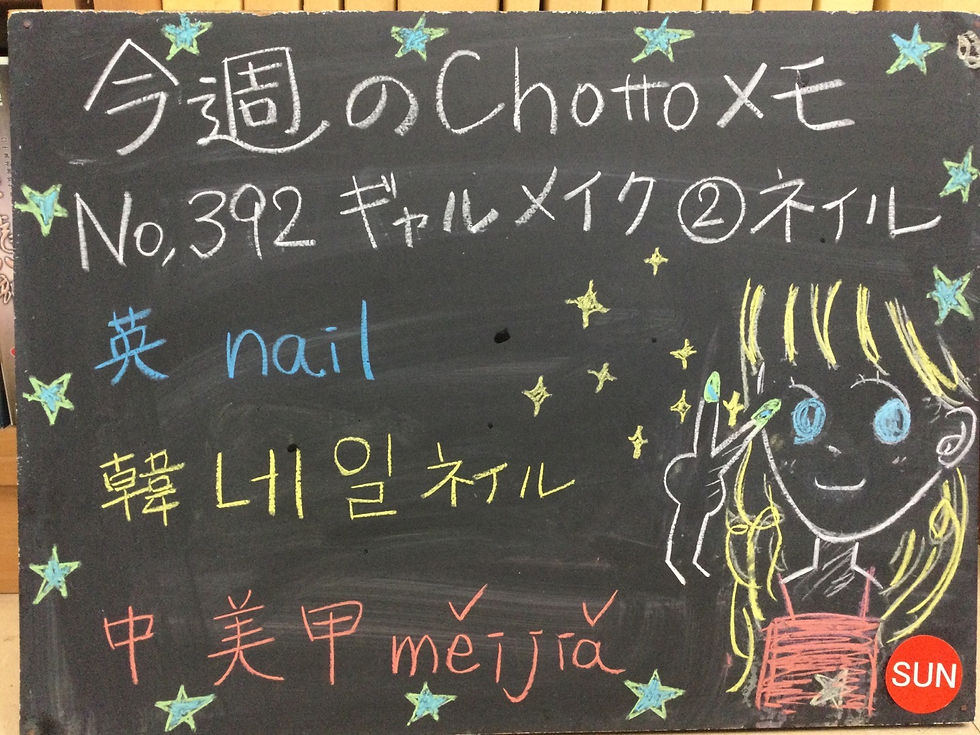 今週のChottoメモ
No,392 ギャルメイク②ネイル
英 nail
韓 네일 ネイル
中 美甲 měijiǎ
SUN